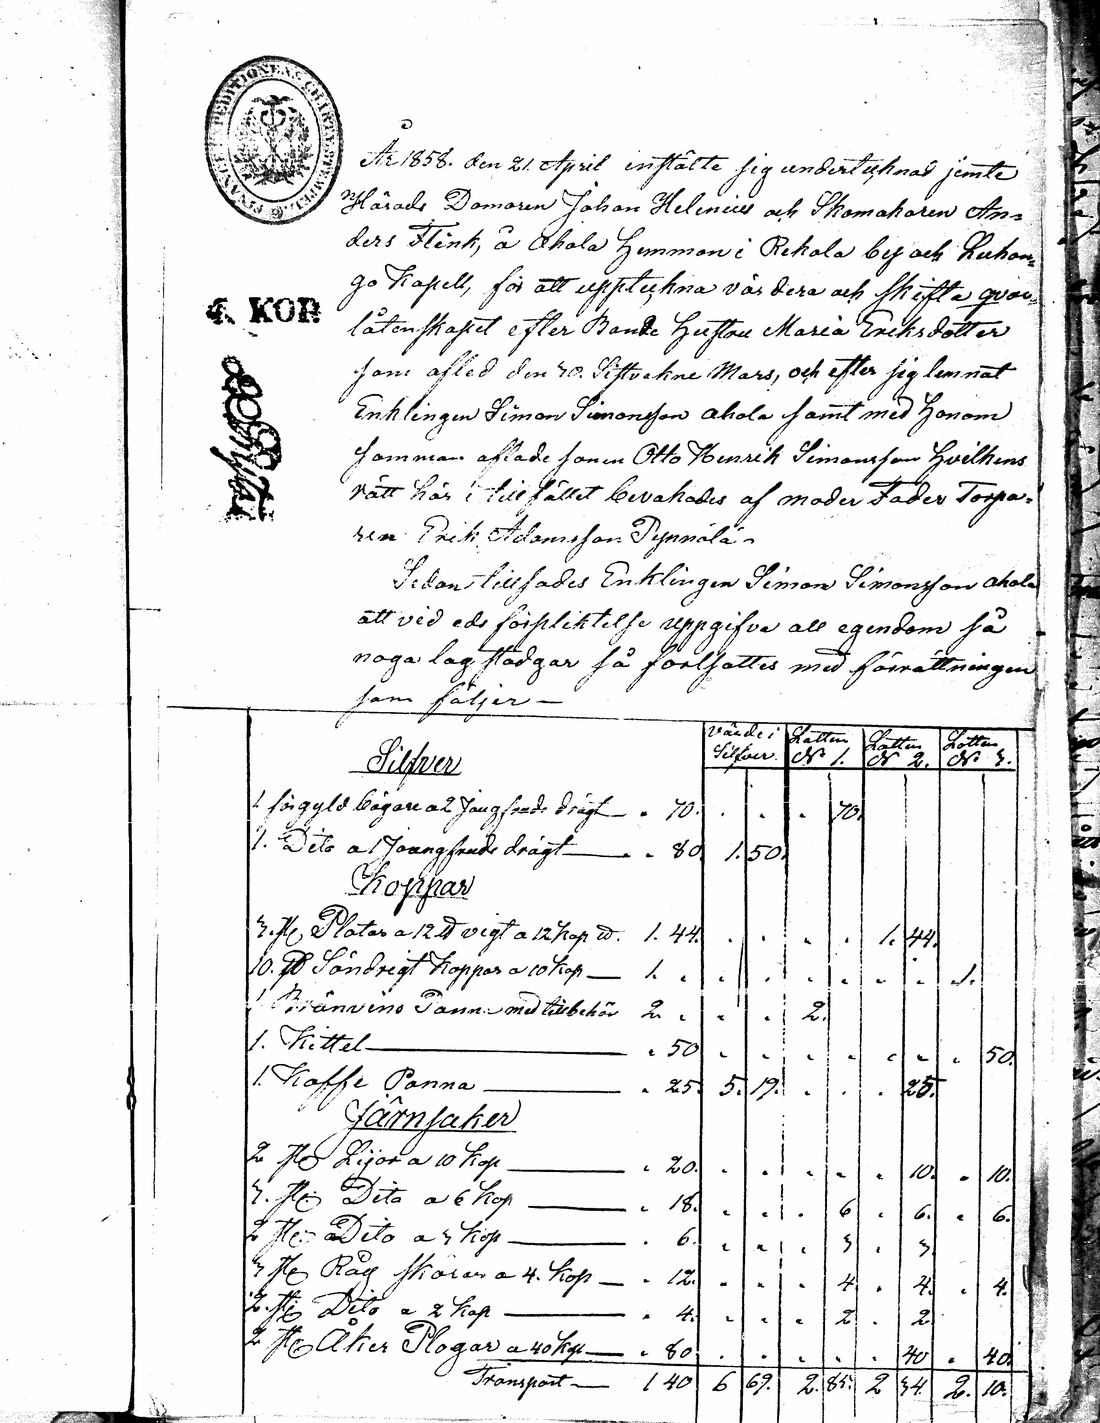 FINANCE EXPEDITIONENS CHARTÆ STEMPEL
År 1858. den 21. April instälte sig undertecknad jemte
Härads Domaren Johan Helenius och Skomakaren An-
ders Flink, å Ahola Hemman i Rekola by och Luhan-
go Kapell, för att upptekna värdera och skifta qvar-
låtenskapet efter Bonde Hustru Maria Eriksdotter
som afled den 30. Sistvekne Mars, och efter sig lemnat
Enklingen Simon Simonsson Ahola samt med honom
samman aflade sonen Otto Henrik Simonsson hvilkens
rätt här i tillfället bevakades af moder Fader Torpa-
ren Erik Adamsson Pynnölä
4. KOP.
Sedan tillsades Enklingen Simon Simonsson Ahola
att vid eds förpliktelse uppgifva all egendom så
noga lag stadgar så fortsattes med förrättningen
som följer —
Värde i Silfver. Lotten № 1. Lotten № 2. Lotten № 3.
Silfver
1 förgyld bägare a 2 Joungfruds drägt — " 70. " " " 70.
1. Dito a 1 Joungfruds drägt — " 80. 1. 50.
Koppar
3. st Plåtar a 12 ℔ vigt a 12 kop ℔. 1. 44. " " " " 1. 44.
10. ℔ Söndrigt Koppar a 10 kop — 1. " " " " " " " 1.
1 Bränvins Panna med tillbehör 2. " " " 2.
1. Kittel — " 50 " " " " " " " 50.
1. Kaffe Panna — " 25. 5. 19. " " " 25.
Järnsaker
2 st Lijor a 10 kop — " 20. " " " " " 10. " 10.
3. st Dito a 6 kop — " 18. " " " 6 " 6. " 6.
2 st Dito a 3 kop — " 6. " " " 3 " 3.
3 st Råg skäror a 4. kop — " 12. " " " 4 " 4. " 4.
2. st Dito a 2 kop — " 4. " " " 2 " 2
2 st Åker Plogar a 40 kop — " 80. " " " " " 40 " 40.
Transport — 1 40 6 69. 2. 85. 2 34. 2. 10.